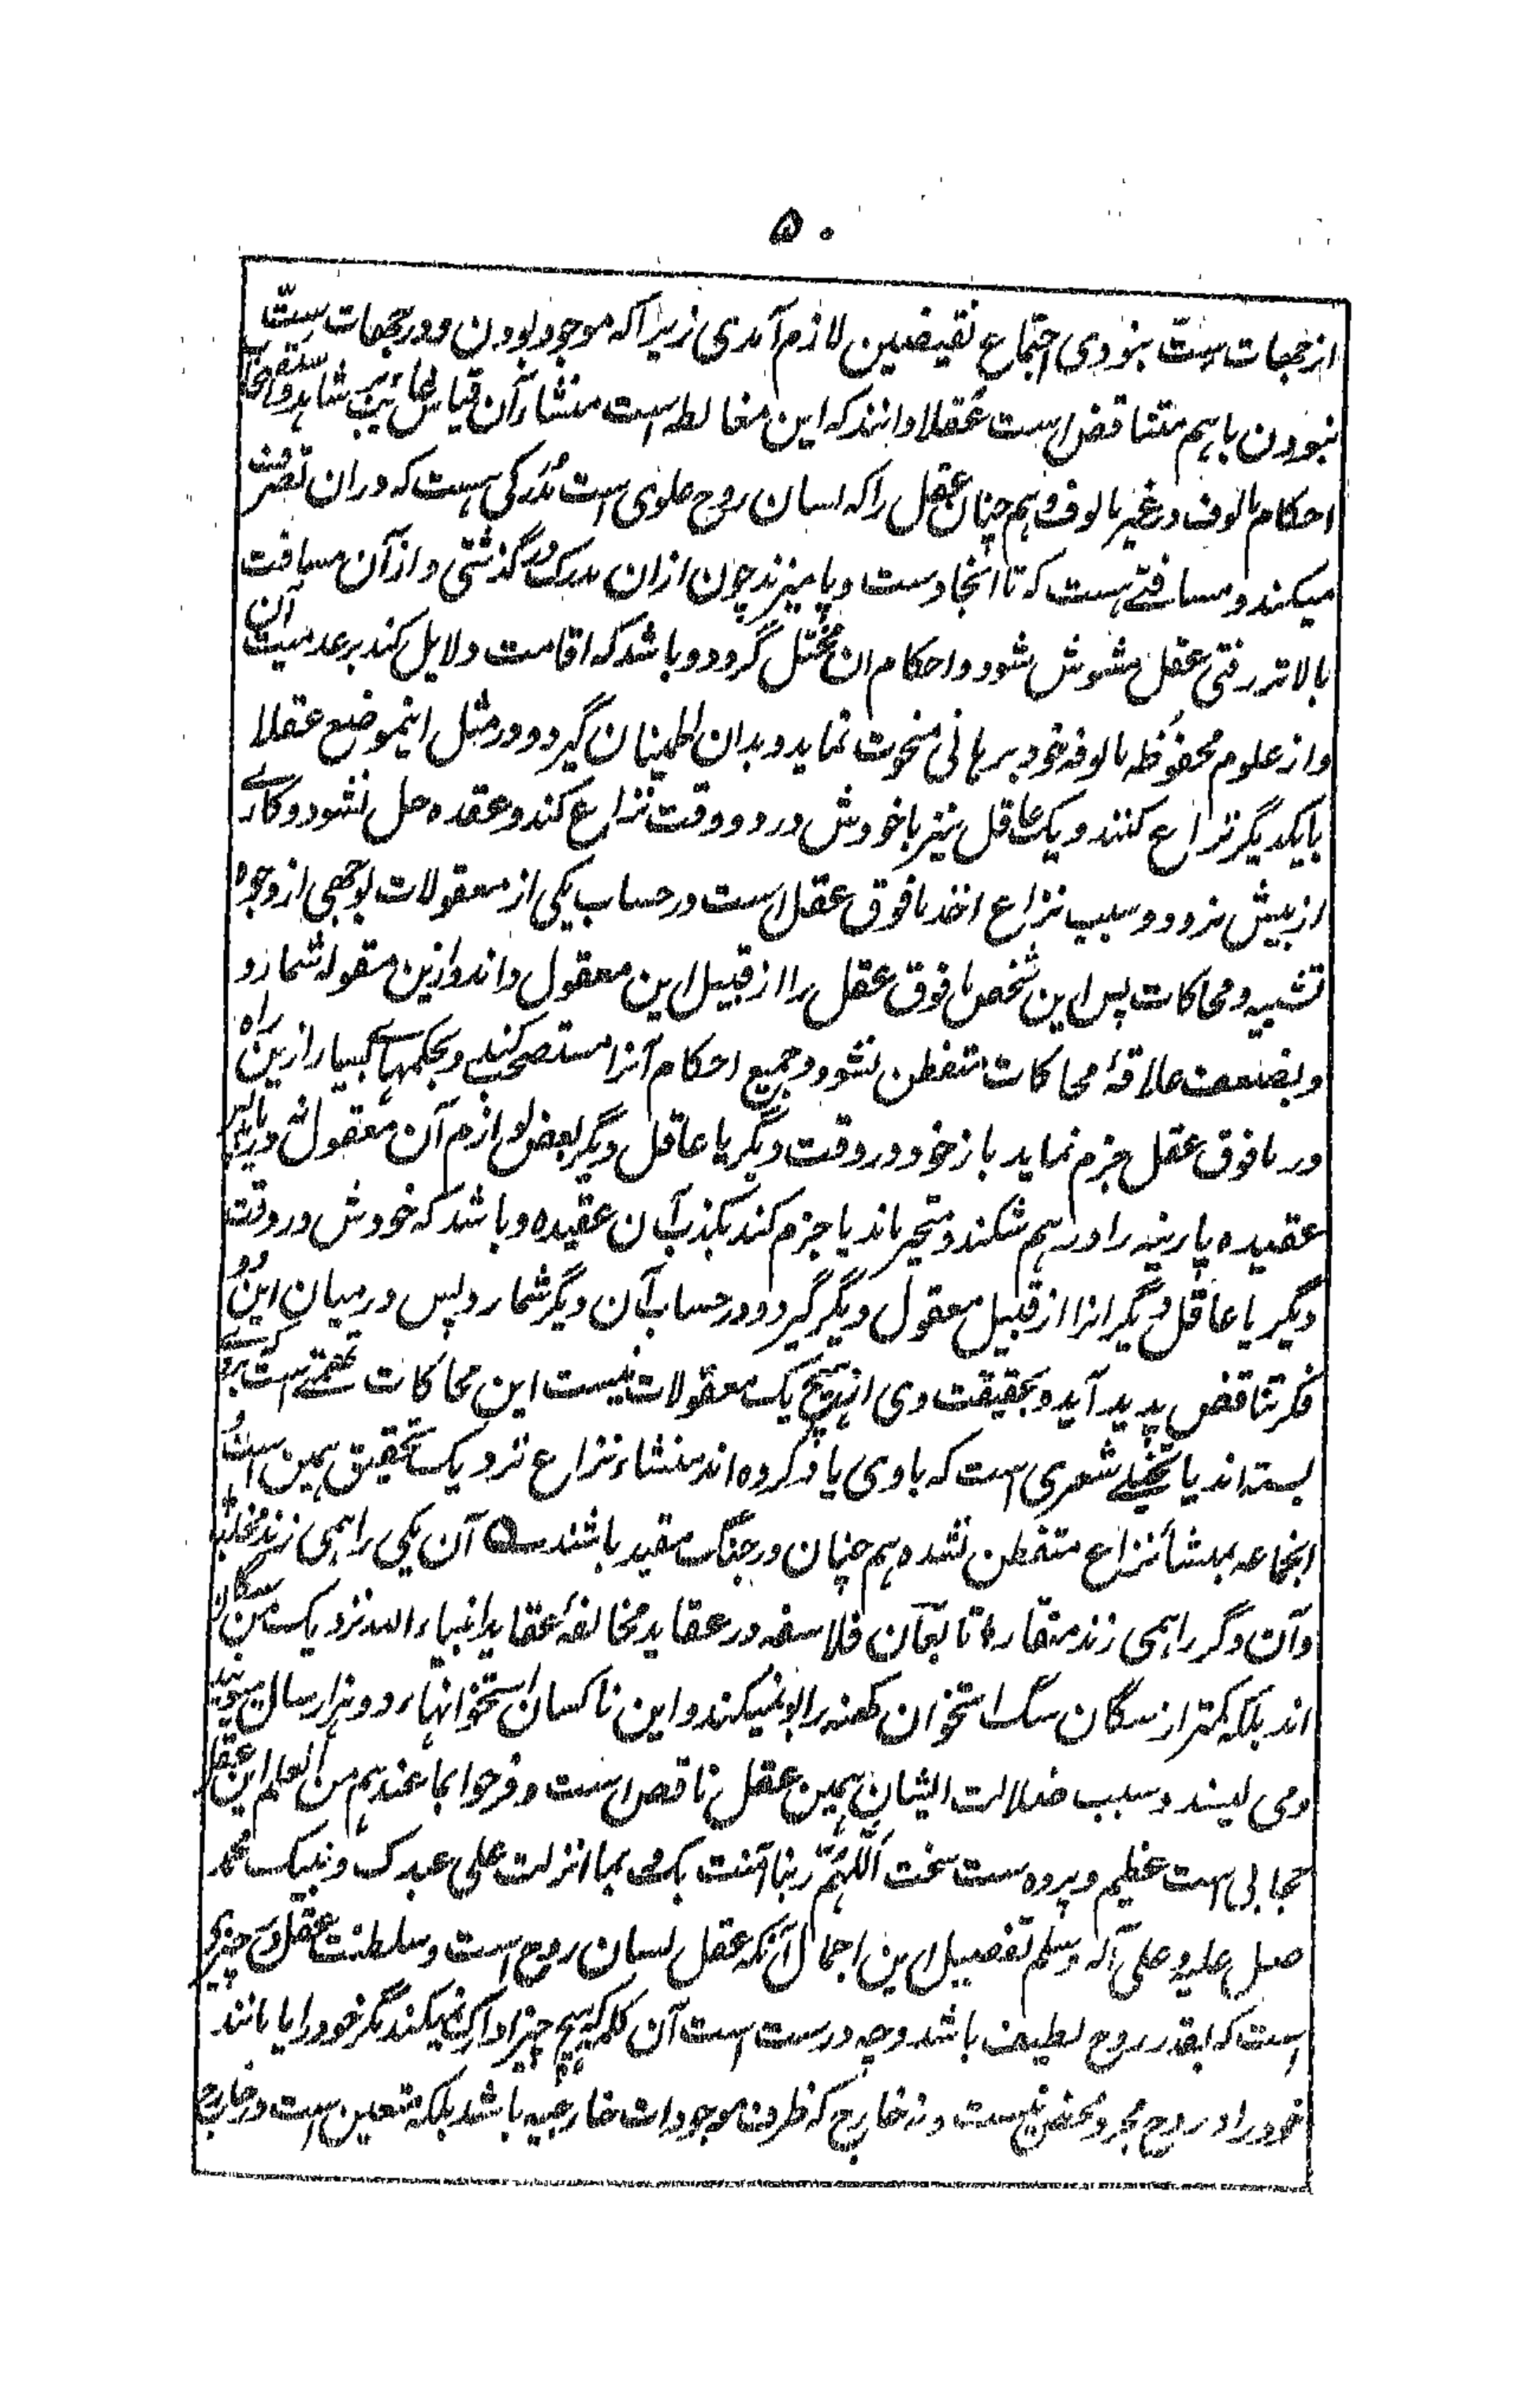 ۵۰
از جهات ستّ نبودی اجتماع نقیضین لازم آمدی زیرا که موجود بودن و در جهات ستّ
نبودن باهم متناقض است عقلا دانند که این مغالطه است منشاء آن قیاس غائب بر شاهد و استصحاب
احکام مالوف در غیر مالوف و هم چنان عقل را که لسان روح علوی است مُدرَکی هست که در ان تصرف
میکند و مسافتے هست که تا آنجا دست و پا میزند چون ازان مدرک در گذشتی و از آن مسافت
بالاتر رفتی عقل مشوش شود و احکام ان مختل گردد و باشد که اقامت دلایل کند بر عدمیت آن
و از علوم محفوظه مالوفه خود برهانی منحوت نماید و بدان اطمینان گیرد و در مثل اینموضع عقلا
بایکدیگر نزاع کنند و یک عاقل نیز با خودش در دو وقت نزاع کند و عقده حل نشود و کارے
از پیش نرود و سبب نزاع اخذ مافوق عقل است در حساب یکی از معقولات بوجهی از وجوه
تشبیه و محاکات پس این شخص مافوق عقل را از قبیل این معقول داند و ازین مقوله شمارد
و بضعف علاقۀ محاکات متفطن نشود و جمیع احکام آنرا مستصحب کند و بحکمهاے بسیار ازین راه
در مافوق عقل جزم نماید باز خود در وقت دیگر یا عاقل دیگر بعض لوازم آن معقول در
عقیده پارینه را در هم شکند و متحیر ماند یا جزم کند بکذب آن عقیده و باشد که خودش در وقت
دیگر یا عاقل دیگر انرا از قبیل معقول دیگر گیرد و در حساب آن دیگر شمارد پس در میان این دو
فکر تناقض پدید آید و بحقیقت وی از هیچ یک معقولات نیست این محاکات تهمتے است که بروے
بسته اند یا تخیلے شعری است که با وی یاد کرده اند منشاء نزاع نزدیک تحقیق همین است
اینجماعه بمنشأ نزاع متفطن نشده هم چنان در جنگ مقید باشند آن یکی را همی زند مخلب
و آن دگر را همی زند منقار تابعان فلاسفه در عقاید مخالفۀ عقاید انبیاء الله نزدیک من سگان
اند بلکه کمتر از سگان سگ استخوان کهنه را بو نمیکند و این ناکسان استخوانهاء دو هزار ساله میبویند
و می لیسند و سبب ضلالت ایشان همین عقل ناقص است و فرحوا بما عندهم من العلم این عقل
حجابی است عظیم و پرده ست سخت اَللّٰهُمَّ ربنا آمنت بک و بما انزلت علی عبدک و نبیک محمد
صل علیه و علی آله و سلم تفصیل این اجمال آنکه عقل لسان روح است و سلطنت عقل در چیزی
است که بقدر روح لطیف باشد و چه درست است آن کلمه که هیچ چیز ادراک نمیکند مگر خود را یا مانند
خود را و روح مجرد محض نیست در خارج که ظرف موجودات خارجیه باشد بلکه متعین است در خارج